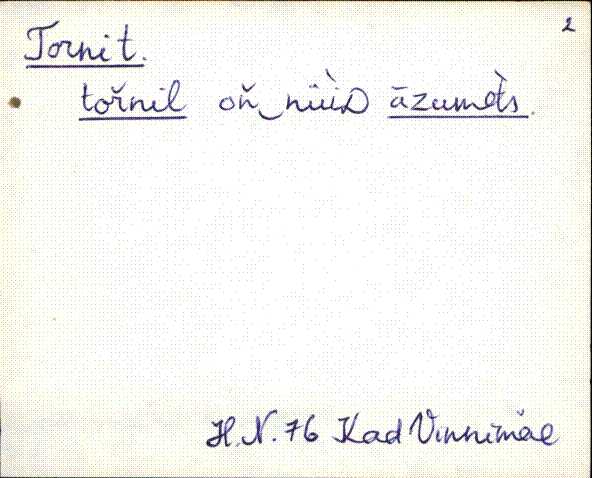 2
Tornit.
tořnil oň‿nüüD āzumèts.
H.N. 76 Kad Vinnimäe